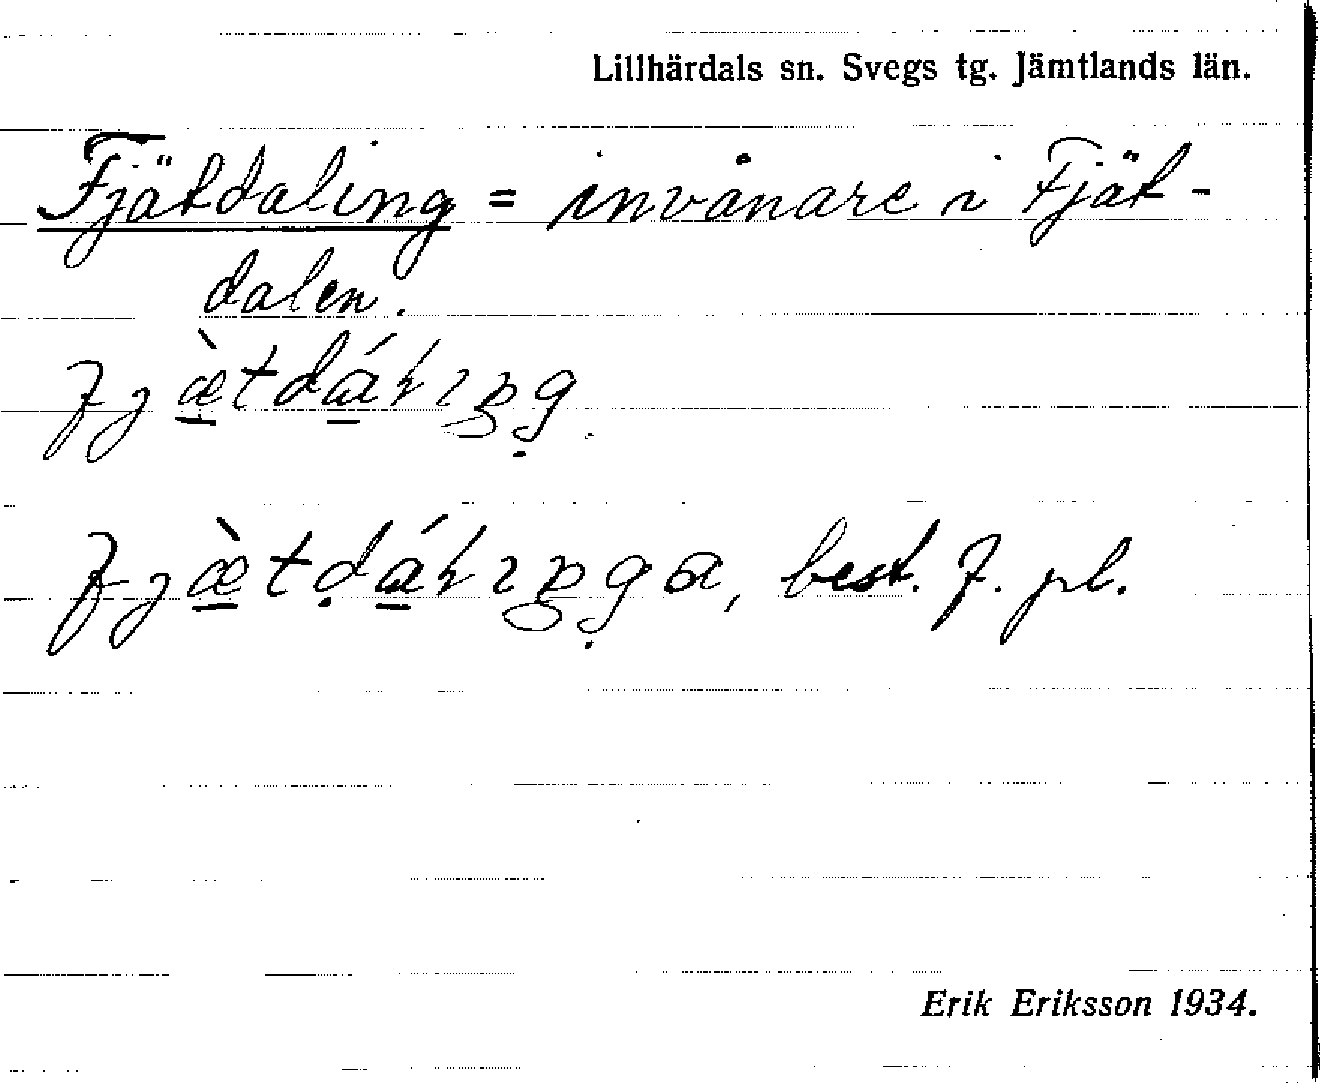 Lillhärdals sn. Svegs tg. Jämtlands län.
Fjätdaling = invånare i Fjät-
dalen.
fjæ̱̀tdá̱ɽıŋg̣
fjæ̱̀tḍá̱ɽıŋg̣a, best. f. pl.
Erik Eriksson 1934.